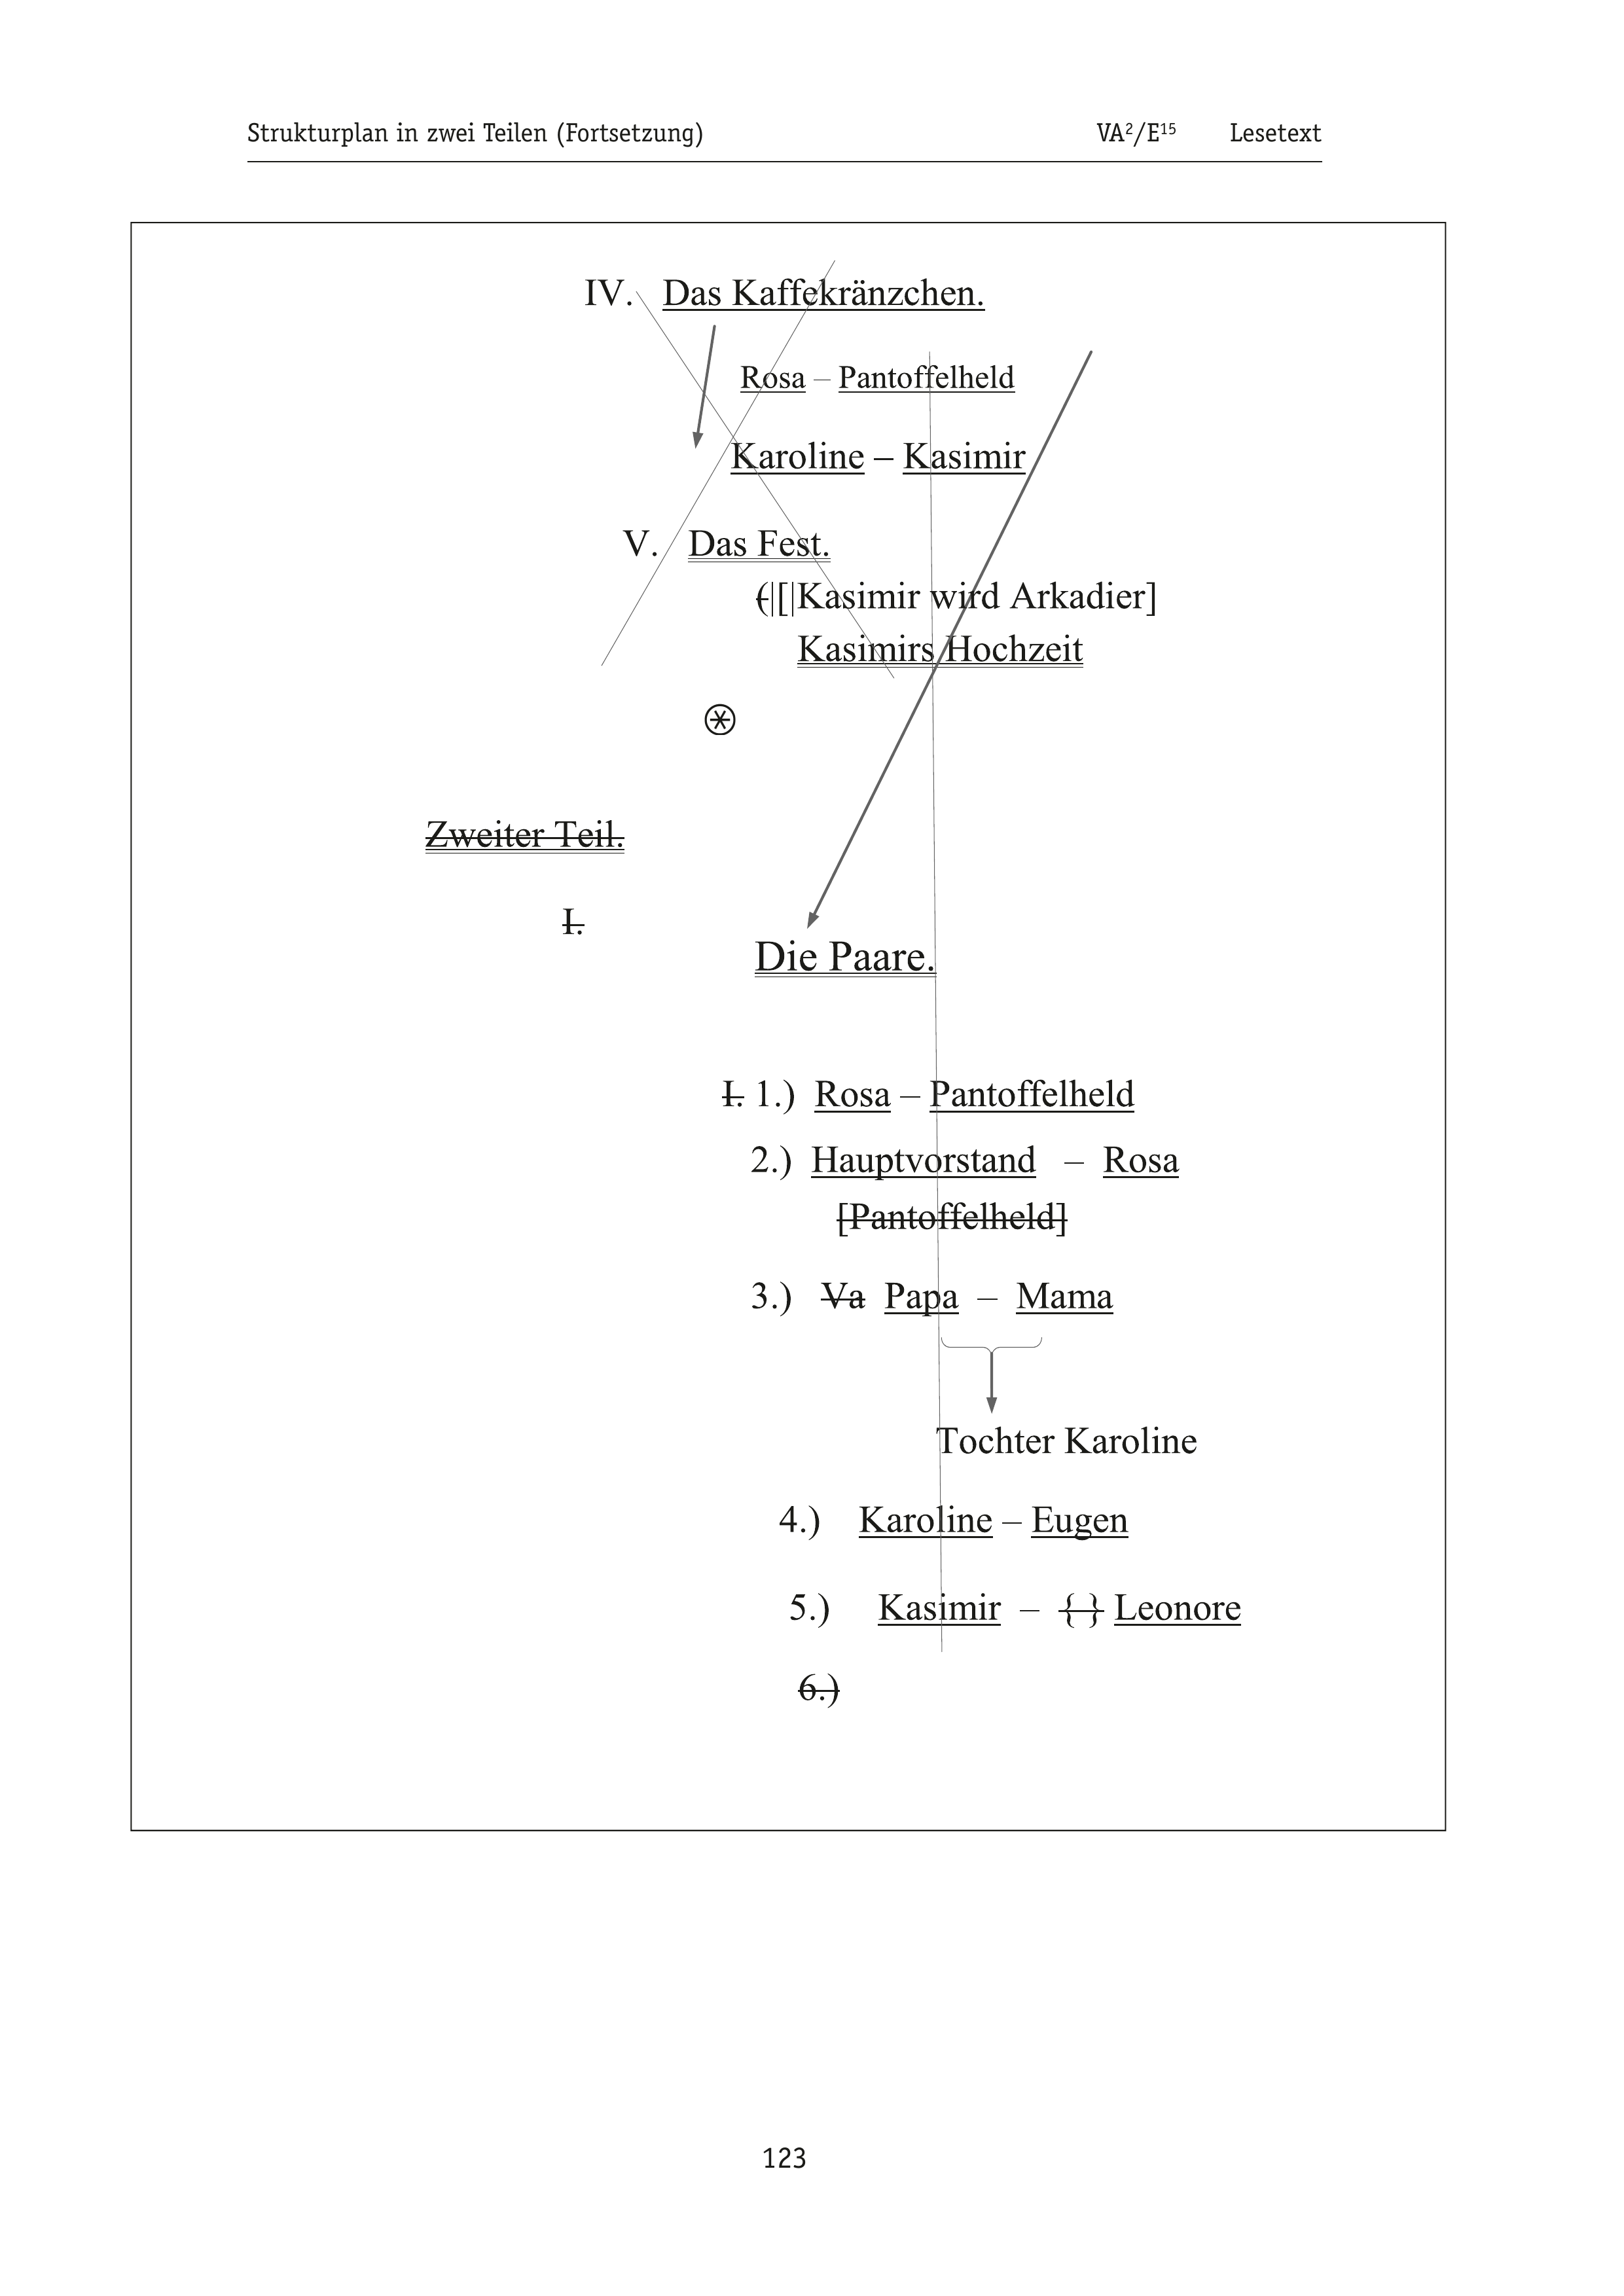 Strukturplan in zwei Teilen (Fortsetzung) VA²/E¹⁵ Lesetext
IV. Das Kaffekränzchen.
Rosa – Pantoffelheld
Karoline – Kasimir
V. Das Fest.
(|[|Kasimir wird Arkadier]
Kasimirs Hochzeit
⊛
Zweiter Teil.
I.
Die Paare.
I. 1.) Rosa – Pantoffelheld
2.) Hauptvorstand – Rosa
[Pantoffelheld]
3.) Va Papa – Mama
Tochter Karoline
4.) Karoline – Eugen
5.) Kasimir – { } Leonore
6.)
123